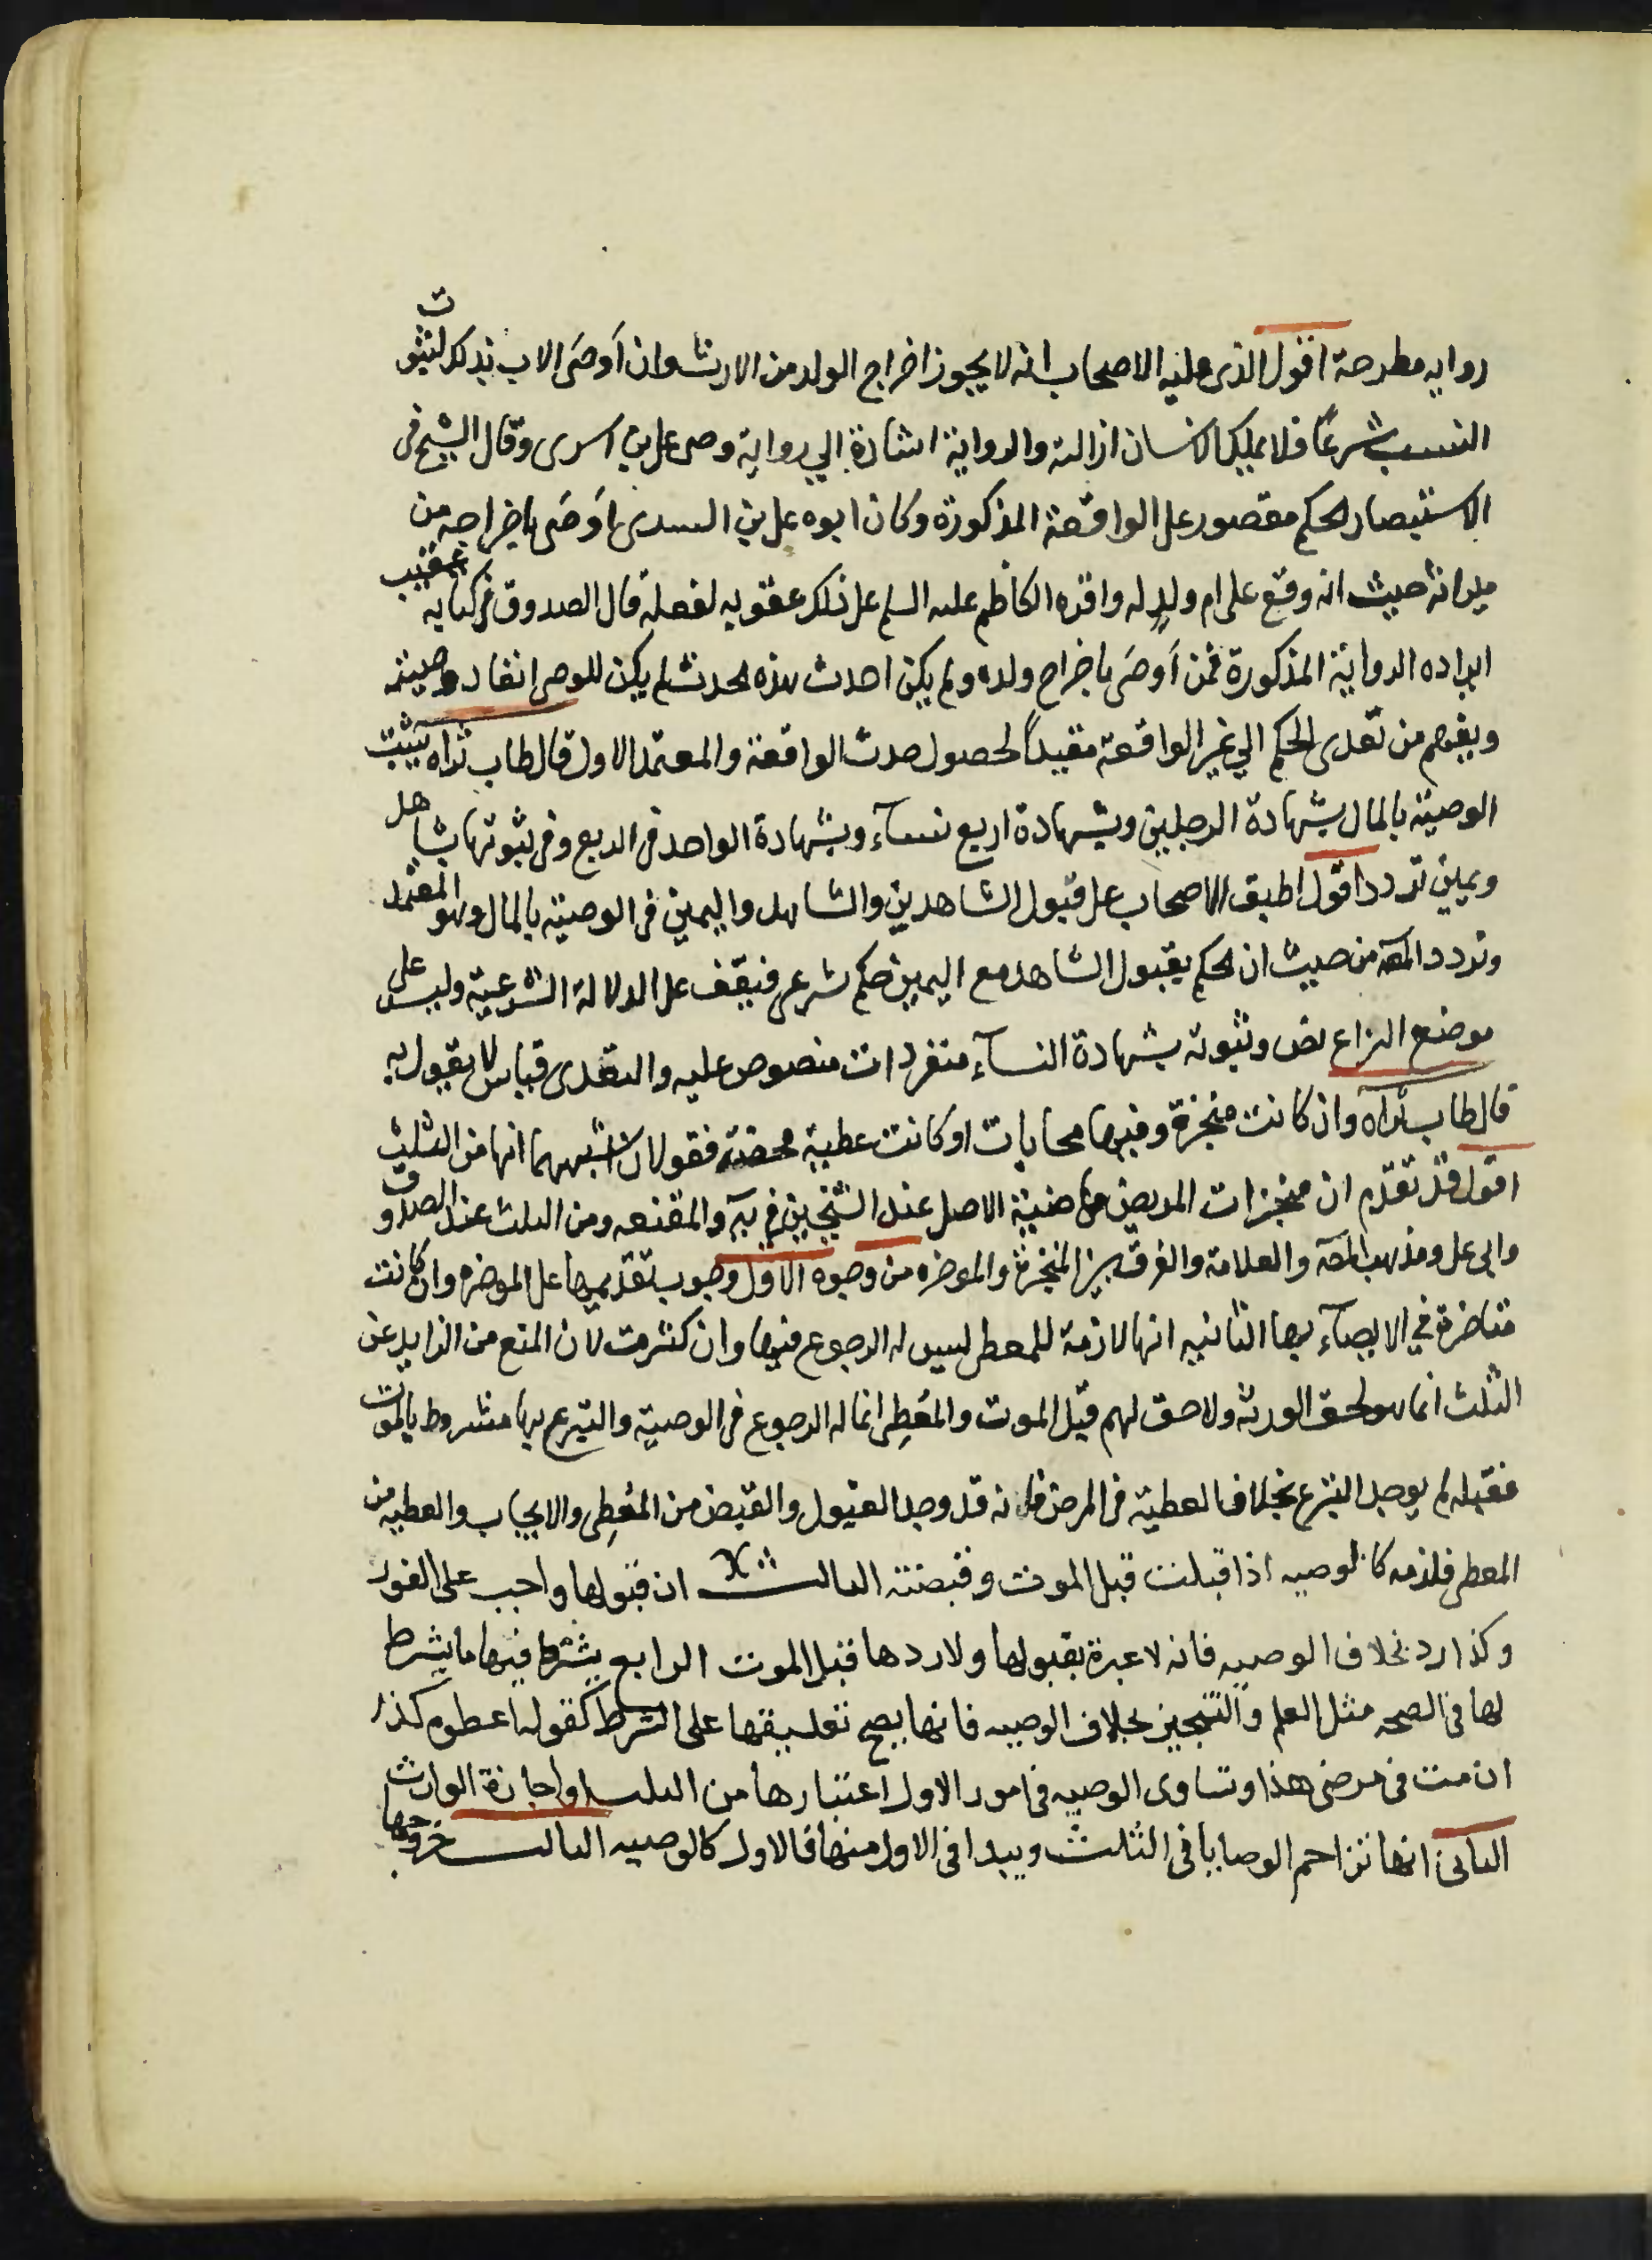 رواية مطرحة اقول الذى عليه الاصحاب انه لا يجوز اخراج الولد من الارث وان اَوصَى الاب بذلك لثبوت
النسب شرعًا فلا يملك الانسان ازالته والرواية اشارة الي رواية وصى على بن السرى وقال الشيخ فى
الاستبصار الحكم مقصور على الواقعة المذكورة وكان ابوه على بن السدى اَوصَى باخراجه من
ميراثه حيث انه وقع على ام ولدٍ له واقره الكاظم عليه السلم على ذلك عقوبه لفعله قال الصدوق فى كتابه عقيب
ايراده الرواية المذكورة فمن اَوصَى باخراج ولده ولم يكن احدث هذه الحدث لم يكن للوصى انفاد وصيته
ويفهم من تعدى الحكم الي غير الواقعة مقيداً لحصول حدث الواقعة والمعتمد الاول قال طاب ثراه تثبت
الوصية بالمال بشهادة الرجلين وبشهادة اربع نسآء وبشهادة الواحد فى الربع وفى ثبوتها بشاهد
ويمين تردد اقول اطبق الاصحاب على قبول الشاهدين والشاهد واليمين فى الوصية بالمال وهو المعتمد
وتردد المصه من حيث ان الحكم بقبول الشاهد مع اليمين حكم شرعى فيقف على الدلالة الشرعية وليس على
موضع النزاع نص وثبوته بشهادة النسآء منفردات منصوص عليه والتعدى قياس لا يقول به
قال طاب ثراه وان كانت منجزة وفيها محابات او كانت عطية محضة فقولان اشبههما انها من الثلث
اقول قد تقدّم ان منجزات المريض ماضية الاصل عند الشيخين فى يه والمقنعه ومن الثلث عند الصدوق
وابى على ومذهب المصه والعلامة والفرق بين المنجزة والموخره من وجوه الاول وجوب تقديمها على الموخره وان كانت
متاخرة في الايصآء بها الثانيه انها لازمة للمعطى ليس له الرجوع فيها وان كثرمت لان المنع من الزايد عن
الثلث انما هو لحق الورثه ولا حق لهم قبل الموت والمُعطِى انما له الرجوع فى الوصية والتبرع بها مشروط بالموت
فقبله لم يوجد التبرع بخلاف العطية فى المرض فانه قد وجد القبول والقبض من المُعطِى والايجاب والعطيه من
المعطى فلزمه كالوصيه اذا قبلت قبل الموت وقبضته الثالث ان قبولها واجب على الفور
وكذا رد بخلاف الوصيه فانه لا عبرة بقبولها ولا ردها قبل الموت الرابع يشترط فيها ما يشرط
لها فى الصحه مثل العلم والتنجيز بخلاف الوصيه فانها يصح تعليقها على الشرط كقوله اعطوه كذا
ان مت فى مرضى هذا وتساوى الوصيه فى امور الاول اعتبارها من الثلث او اجازة الوارث
الثانى انها تزاحم الوصايا فى الثلث ويبدا فى الاول منها فالاول كالوصيه الثالث خروجها